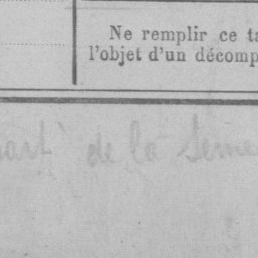 Ne remplir ce ta
l'objet d'un décomp
de la Seine